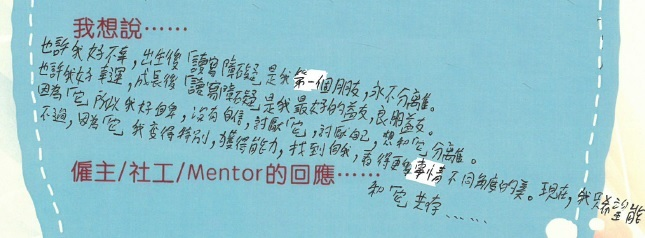 我想說⋯⋯
也許我好不幸，出生後「讀寫障礙」是我第一個朋友，永不分離。
也許我好幸運，成長後「讀寫障礙」是我最好的益友，良朋益友。
因為「它」所以我好自卑，沒有自信，討厭「它」，討厭自己，想和「它」分離。
不過，因為「它」我變得特別，獲得能力，找到自我，看得更多事情不同角度的美。現在，我只希望能
和「它」共存⋯⋯
僱主/社工/Mentor的回應⋯⋯